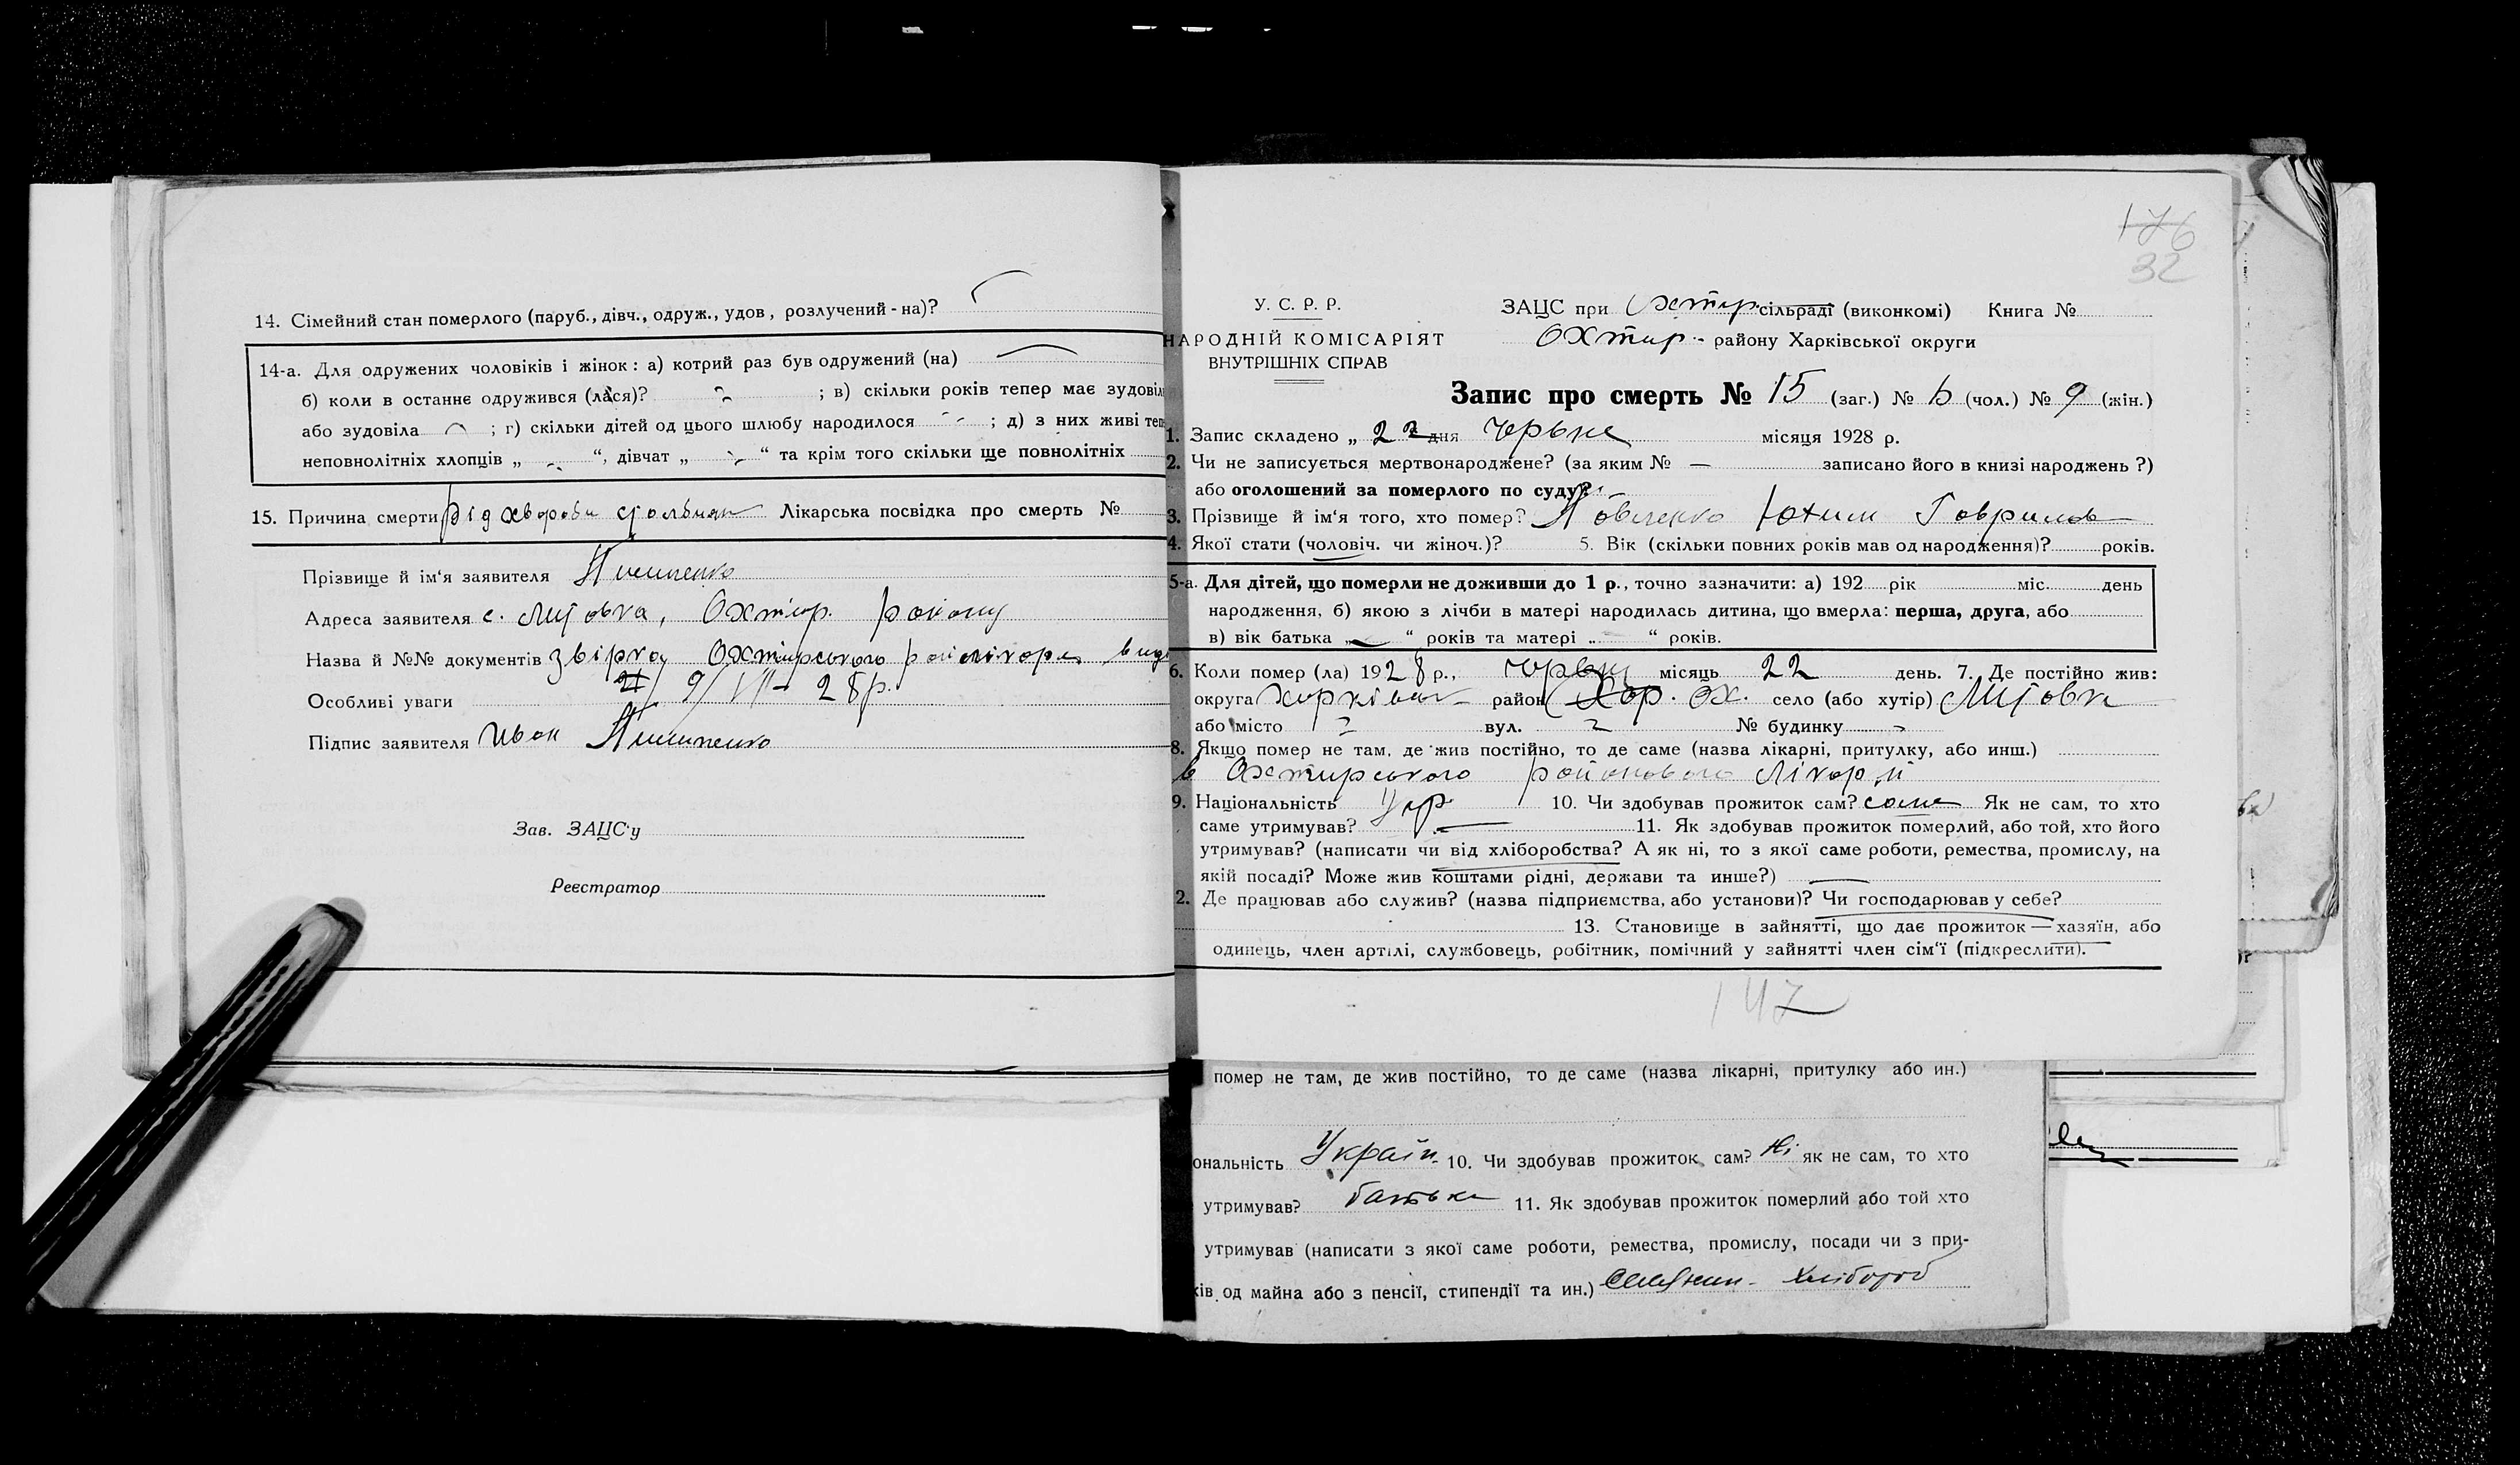 14. Сімейний стан померлого (паруб., дівч., одруж., удов, розлучений - на)?
14-а. Для одружених чоловіків і жінок: а) котрий раз був одружений (на)
б) коли в останнє одружився (лася)? ; в) скільки років тепер має зудовіл
або зудовіла ; г) скільки дітей од цього шлюбу народилося ; д) з них живі теп
неповнолітніх хлопців „ “, дівчат „ “ та крім того скільки ще повнолітніх
15. Причина смерти від хвороби Лікарська посвідка про смерть №
Прізвище й ім‘я заявителя
Адреса заявителя с. Литовка, Охтир. району
Назва й №№ документів Охтирського
9/VII - 28р.
Особливі уваги
Підпис заявителя Иван
Зав. ЗАЦС‘у
Реєстратор
176
32
У. С. Р. Р.
НАРОДНІЙ КОМІСАРІЯТ
ВНУТРІШНІХ СПРАВ
ЗАЦС при Охтир. сільраді (виконкомі) Книга №
Охтир. - району Харківської округи
Запис про смерть № 15 (заг.) № 6 (чол.) № 9 (жін.)
1. Запис складено „ 22 дня місяця 1928 р.
2. Чи не записується мертвонароджене? (за яким № — записано його в книзі народжень ?)
або оголошений за померлого по суду?
3. Прізвище й ім‘я того, хто помер? Юхим Гаврилов
4. Якої стати (чоловіч. чи жіноч.)? 5. Вік (скільки повних років мав од народження)? років.
5-а. Для дітей, що померли не доживши до 1 р., точно зазначити: а) 192 рік міс. день
народження, б) якою з лічби в матері народилась дитина, що вмерла: перша, друга, або
в) вік батька „ “ років та матері „ “ років.
6. Коли помер (ла) 1928 р., місяць 22 день. 7. Де постійно жив:
округа район Хар. Ох. село (або хутір) Литовка
або місто вул. № будинку
8. Якщо помер не там, де жив постійно, то де саме (назва лікарні, притулку, або инш.)
в Охтирського районового лікарні
9. Національність Укр 10. Чи здобував прожиток сам? саме Як не сам, то хто
саме утримував? — 11. Як здобував прожиток померлий, або той, хто його
утримував? (написати чи від хліборобства? А як ні, то з якої саме роботи, ремества, промислу, на
якій посаді? Може жив коштами рідні, держави та инше?) —
2. Де працював або служив? (назва підприємства, або установи)? Чи господарював у себе?
13. Становище в зайнятті, що дає прожиток — хазяїн, або
одинець, член артілі, службовець, робітник, помічний у зайнятті член сім‘ї (підкреслити).
147
помер не там, де жив постійно, то де саме (назва лікарні, притулку або ин.)
ональність Україн. 10. Чи здобував прожиток сам? Ні як не сам, то хто
утримував? батьки 11. Як здобував прожиток померлий або той хто
утримував (написати з якої саме роботи, ремества, промислу, посади чи з при-
ків од майна або з пенсії, стипендії та ин.) Хлібороб